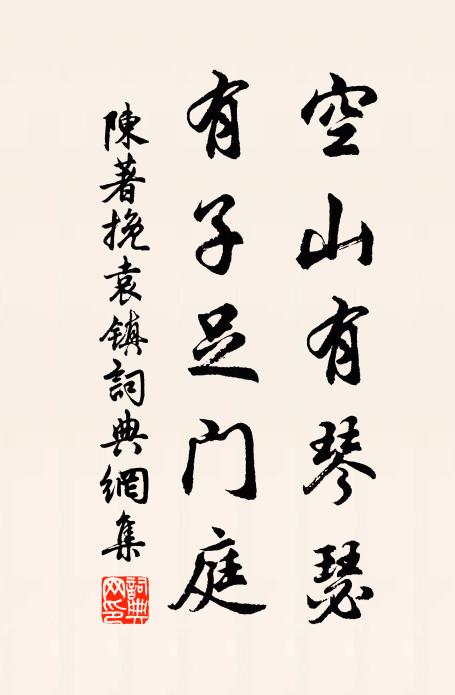 空山有琴瑟
有子足门庭
陳著挽袁镇詞典網集
詞典网印